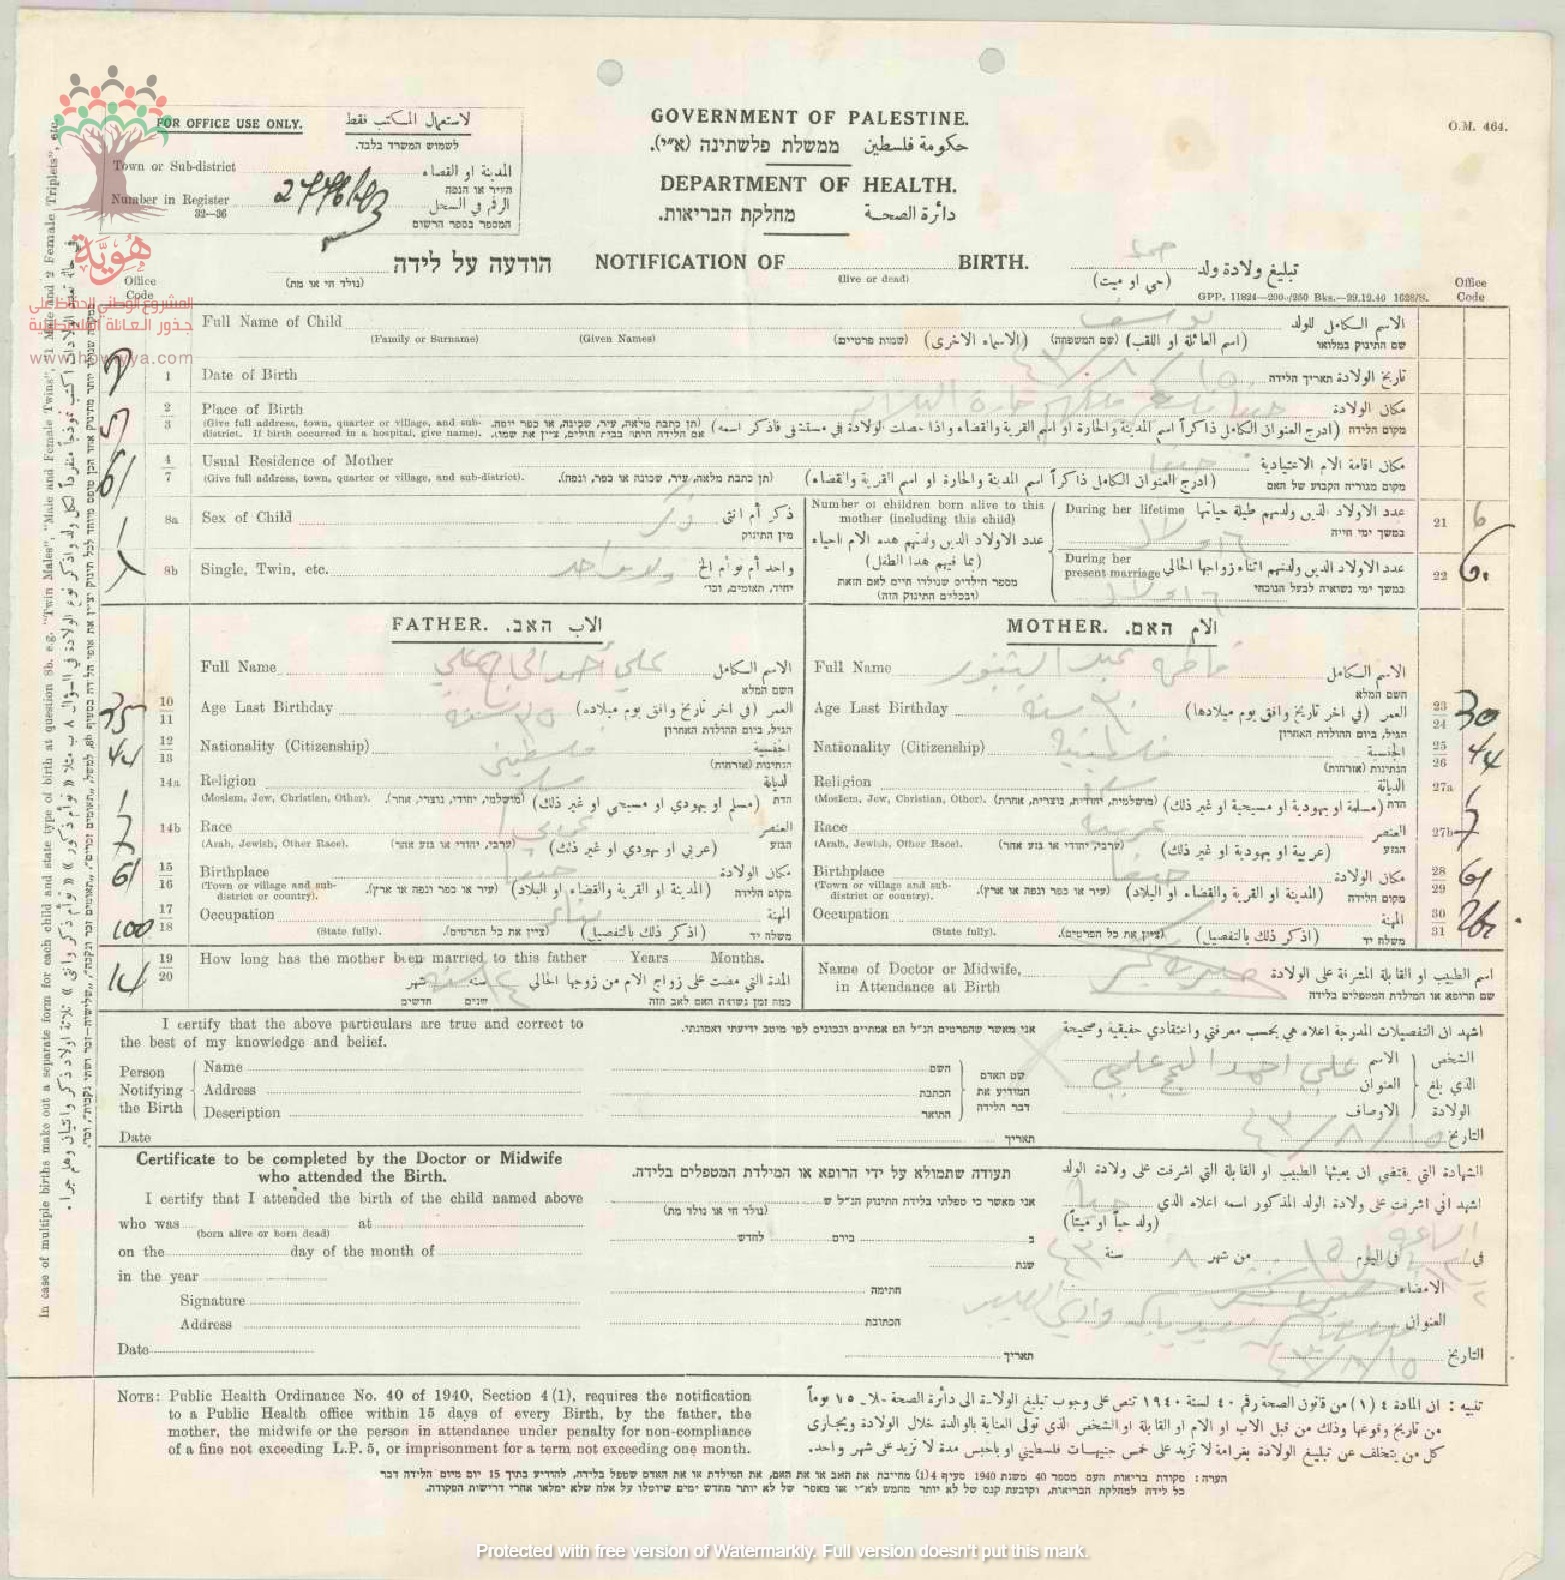 GOVERNMENT OF PALESTINE.
حكومة فلسطين ממשלת פלשתינה (א״י).
DEPARTMENT OF HEALTH.
دائرة الصحة מחלקת הבריאות.
O.M. 464.
FOR OFFICE USE ONLY. لاستعمال المكتب فقط
לשמוש המשרד בלבד.
Town or Sub-district المدينة او القضاء
העיר או הנפה
Number in Register الرقم في السجل
32—36 המספר בספר הרשום
הודעה על לידה NOTIFICATION OF BIRTH. تبليغ ولادة ولد
(נולד חי או מת) (live or dead) (حي او ميت)
GPP. 11824—200-/250 Bks.—29.12.40 1628/S.
Office Code
Office Code
هوية
المشروع الوطني للحفاظ على
جذور العائلة الفلسطينية
www.howiyya.com
Full Name of Child يوسف الاسم الكامل للولد
(Family or Surname) (Given Names) (שמות פרטיים) (الاسماء الاخرى) (שם המשפחה) (اسم العائلة او اللقب) שם התינוק במלואו
1 Date of Birth تاريخ الولادة תאריך הלידה
2 3 Place of Birth مكان الولادة
(Give full address, town, quarter or village, and sub-district. If birth occurred in a hospital, give name). (תן כתבת מלאה, עיר, שכונה, או כפר ונפה. אם הלידה היתה בבית חולים, ציין את שמו). (ادرج العنوان الكامل ذاكراً اسم المدينة والحارة او اسم القرية والقضاء واذا حصلت الولادة في مستشفى فاذكر اسمه) מקום הלידה
4 7 Usual Residence of Mother حيفا مكان اقامة الام الاعتيادية
(Give full address, town, quarter or village, and sub-district). (תן כתבת מלאה, עיר, שכונה או כפר, ונפה). (ادرج العنوان الكامل ذاكراً اسم المدينة والحارة او اسم القرية والقضاء) מקום מגוריה הקבוע של האם
8a Sex of Child ذكر ذكر أم انثى
מין התינוק
8b Single, Twin, etc. ولد واحد واحد أم توأم الخ
יחיד, תאומים, וכו׳
Number of children born alive to this mother (including this child)
عدد الاولاد الذين ولدتهم هذه الام احياء
(بما فيهم هذا الطفل)
מספר הילדים שנולדו חיים לאם הזאת
(ובכללם התינוק הזה)
During her lifetime عدد الاولاد الذين ولدتهم طيلة حياتها 21 6
במשך ימי חייה
٦ اولاد
During her present marriage عدد الاولاد الذين ولدتهم اثناء زواجها الحالي 22 6.
במשך ימי נשואיה לבעל הנוכחי
٦ اولاد
FATHER. האב. الاب
Full Name علي أحمد الحاج علي الاسم الكامل
השם המלא
35 10 11 Age Last Birthday ٣٥ سنة العمر (في اخر تاريخ وافق يوم ميلاده)
הגיל, ביום ההולדת האחרון
44 12 13 Nationality (Citizenship) فلسطيني الجنسية
הנתינות (אזרחות)
1 14a Religion مسلم الديانة
(Moslem, Jew, Christian, Other). (מושלמי, יהודי, נוצרי, אחר). (مسلم او يهودي او مسيحي او غير ذلك) הדת
14b Race عربي العنصر
(Arab, Jewish, Other Race). (ערבי, יהודי או גזע אחר) (عربي او يهودي او غير ذلك) הגזע
61 15 16 Birthplace حيفا مكان الولادة
(Town or village and sub-district or country). (עיר או כפר ונפה או ארץ). (المدينة او القرية والقضاء او البلاد) מקום הלידה
100 17 18 Occupation المهنة
(State fully). (ציין את כל הפרטים). (اذكر ذلك بالتفصيل) משלח יד
14 19 20 How long has the mother been married to this father Years Months.
المدة التي مضت على زواج الام من زوجها الحالي سنة شهر
כמה זמן נשואה האם לאב הזה שנים חדשים
MOTHER. האם. الام
Full Name فاطمة عبد الاسم الكامل
השם המלא
Age Last Birthday ٣٠ سنة العمر (في اخر تاريخ وافق يوم ميلادها) 23 24 30
הגיל, ביום ההולדת האחרון
Nationality (Citizenship) فلسطينية الجنسية 25 26 44
הנתינות (אזרחות)
Religion الديانة 27a
(Moslem, Jew, Christian, Other). (מושלמיה, יהודית, נוצרית, אחרת) (مسلمة او يهودية او مسيحية او غير ذلك) הדת
Race عربية العنصر 27b
(Arab, Jewish, Other Race). (ערבי, יהודי או גזע אחר) (عربية او يهودية او غير ذلك) הגזע
Birthplace حيفا مكان الولادة 28 29 61
(Town or village and sub-district or country). (עיר או כפר ונפה או ארץ). (المدينة او القرية والقضاء او البلاد) מקום הלידה
Occupation المهنة 30 31
(State fully). (ציין את כל הפרטים). (اذكر ذلك بالتفصيل) משלח יד
Name of Doctor or Midwife, in Attendance at Birth اسم الطبيب او القابلة المشرفة على الولادة
שם הרופא או המילדת המטפלים בלידה
I certify that the above particulars are true and correct to the best of my knowledge and belief.
אני מאשר שהפרטים הנ״ל הם אמתיים ונכונים לפי מיטב ידיעתי ואמונתי.
اشهد ان التفصيلات المدرجة اعلاه هي بحسب معرفتي واعتقادي حقيقية وصحيحة
Person Notifying the Birth
Name
Address
Description
Date
שם האדם המודיע את דבר הלידה
השם
הכתבת
התואר
תאריך
الشخص الذي بلغ الولادة
الاسم علي احمد الحج علي
العنوان
الاوصاف
التاريخ ١٥/٨/٤٣
Certificate to be completed by the Doctor or Midwife who attended the Birth.
I certify that I attended the birth of the child named above
who was at
(born alive or born dead)
on the day of the month of
in the year
Signature
Address
Date
תעודה שתמולא על ידי הרופא או המילדת המטפלים בלידה.
אני מאשר כי טפלתי בלידת התינוק הנ״ל ש
(נולד חי או נולד מת)
ב בירם לחדש
שנת
חתימה
הכתובת
תאריך
الشهادة التي يقتضي ان يعبئها الطبيب او القابلة التي اشرفت على ولادة الولد
اشهد اني اشرفت على ولادة الولد المذكور اسمه اعلاه الذي حيا
(ولد حياً او ميتاً)
الساعة
في في اليوم ١٥ من شهر ٨ سنة ٤٣
الامضاء
العنوان
التاريخ ١٥/٨/٤٣
NOTE: Public Health Ordinance No. 40 of 1940, Section 4 (1), requires the notification
to a Public Health office within 15 days of every Birth, by the father, the
mother, the midwife or the person in attendance under penalty for non-compliance
of a fine not exceeding L.P. 5, or imprisonment for a term not exceeding one month.
تنبيه : ان المادة ٤ (١) من قانون الصحة رقم ٤٠ لسنة ١٩٤٠ تنص على وجوب تبليغ الولادة الى دائرة الصحة خلال ١٥ يوماً
من تاريخ وقوعها وذلك من قبل الاب او الام او القابلة او الشخص الذي تولى العناية بالوالدة خلال الولادة ويجازى
كل من يتخلف عن تبليغ الولادة بغرامة لا تزيد على خمس جنيهات فلسطيني او بالحبس مدة لا تزيد على شهر واحد.
הערה : פקודת בריאות העם מספר 40 משנת 1940 סעיף 4(1) מחייבת את האב או את האם, את המילדת או את האדם שטפל בלידה, להודיע בתוך 15 יום מיום הלידה דבר
כל לידה למחלקת הבריאות, וקובעת קנס של לא יותר מחמש לא״י או מאסר של לא יותר מחדש ימים שיוטלו על אלה שלא ימלאו אחרי דרישות הפקודה.
In case of multiple births make out a separate form for each child and state type of birth at question 8b. e.g. "Twin Males", "Male and Female Twins", "1 Male and 2 Female Triplets", etc.
Protected with free version of Watermarkly. Full version doesn't put this mark.